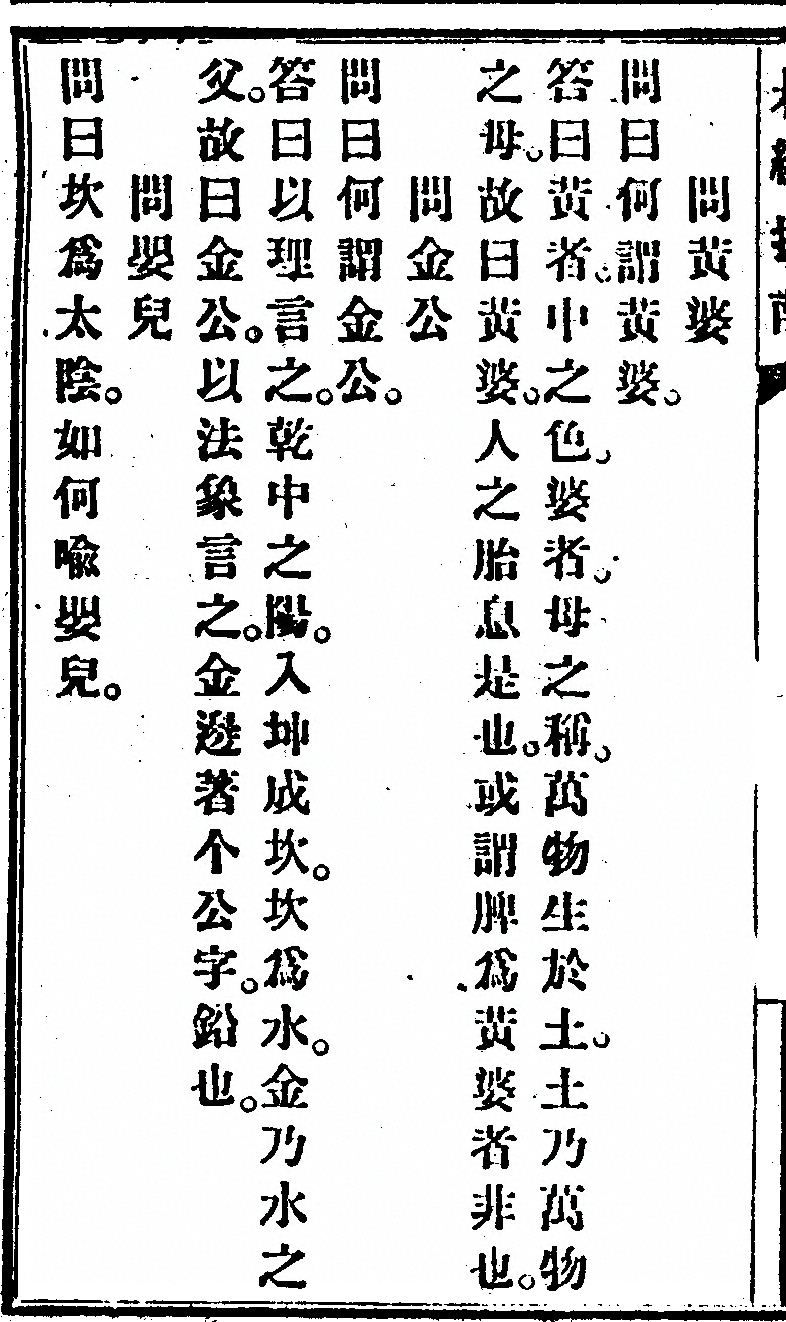 問黃婆
問曰何謂黃婆。
答曰黃者。中之色。婆者。母之稱。萬物生於土。土乃萬物
之母。故曰黃婆。人之胎息是也。或謂脾為黃婆者非也。
問金公
問曰何謂金公。
答曰以理言之。乾中之陽。入坤成坎。坎為水。金乃水之
父。故曰金公。以法象言之。金邊著个公字。鉛也。
問嬰兒
問曰坎為太陰。如何喩嬰兒。